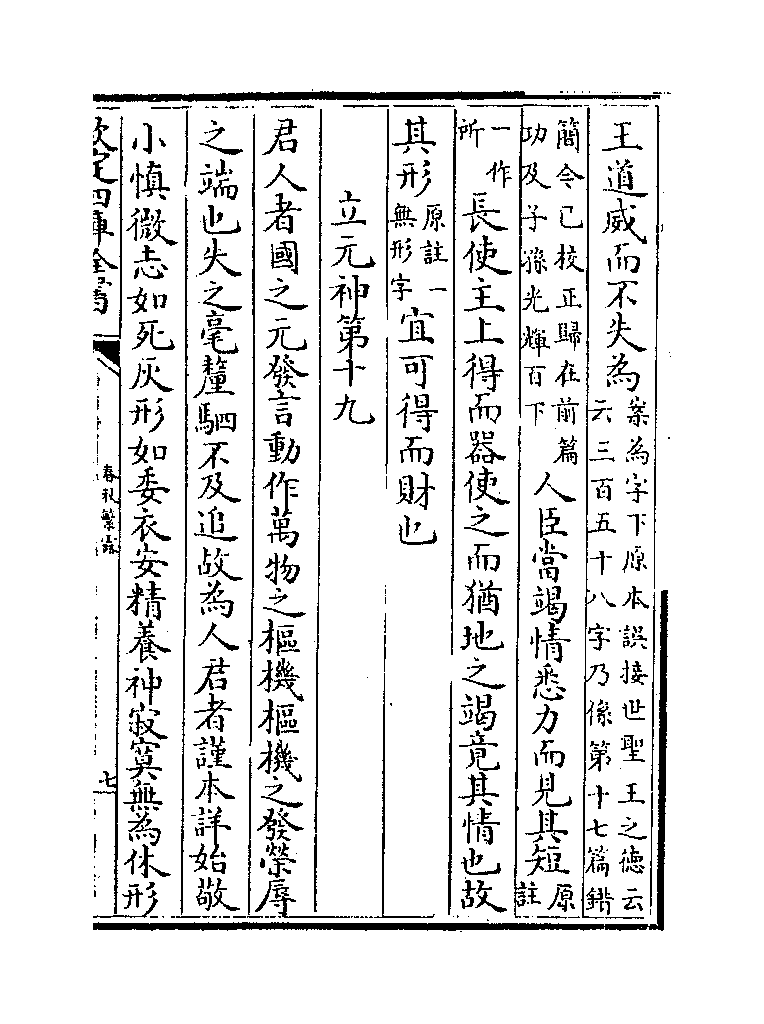 王道威而不失為案為字下原本誤接世聖王之德云云三百五十八字乃係第十七篇錯
簡今已校正歸在前篇功及子孫光輝百下人臣當竭情悉力而見其短原註
一作所長使主上得而器使之而猶地之竭竟其情也故
其形原註一無形字宜可得而財也
立元神第十九
君人者國之元發言動作萬物之樞機樞機之發榮辱
之端也失之毫釐駟不及追故為人君者謹本詳始敬
小慎微志如死灰形如委衣安精養神寂寞無為休形
欽定四庫全書
春秋繁露
七